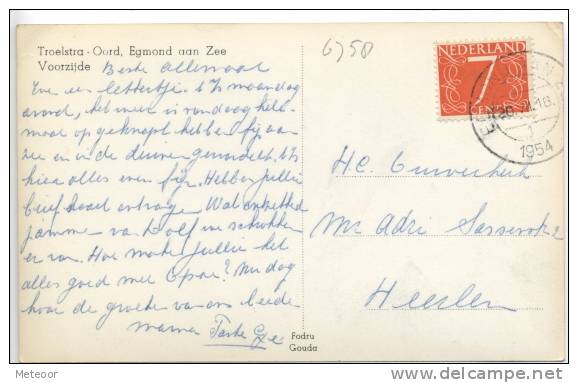 Troelstra-Oord, Egmond aan Zee
Voorzijde Beste Allemaal
Even een lettertje. 't Is maandag
avond, het weer is vandaag hele-
maal op geknapt hebben fijn aan
zee en in de duinen gewandelt. 't Is
hier alles even fijn. Hebben jullie
brief kaart ontvange. Wat ontzettend
jammer van Dolf we schrokken
er van. Hoe maken jullie het
alles goed met Opoe? Nu dag
hoor de groeten van ons beide
mama Tante
6758
NEDERLAND
7
CENT
1954
H.C.
Mr Adri Sassen 2
Heerlen
Fodru
Gouda
Meteoor
http://www.delcampe.net